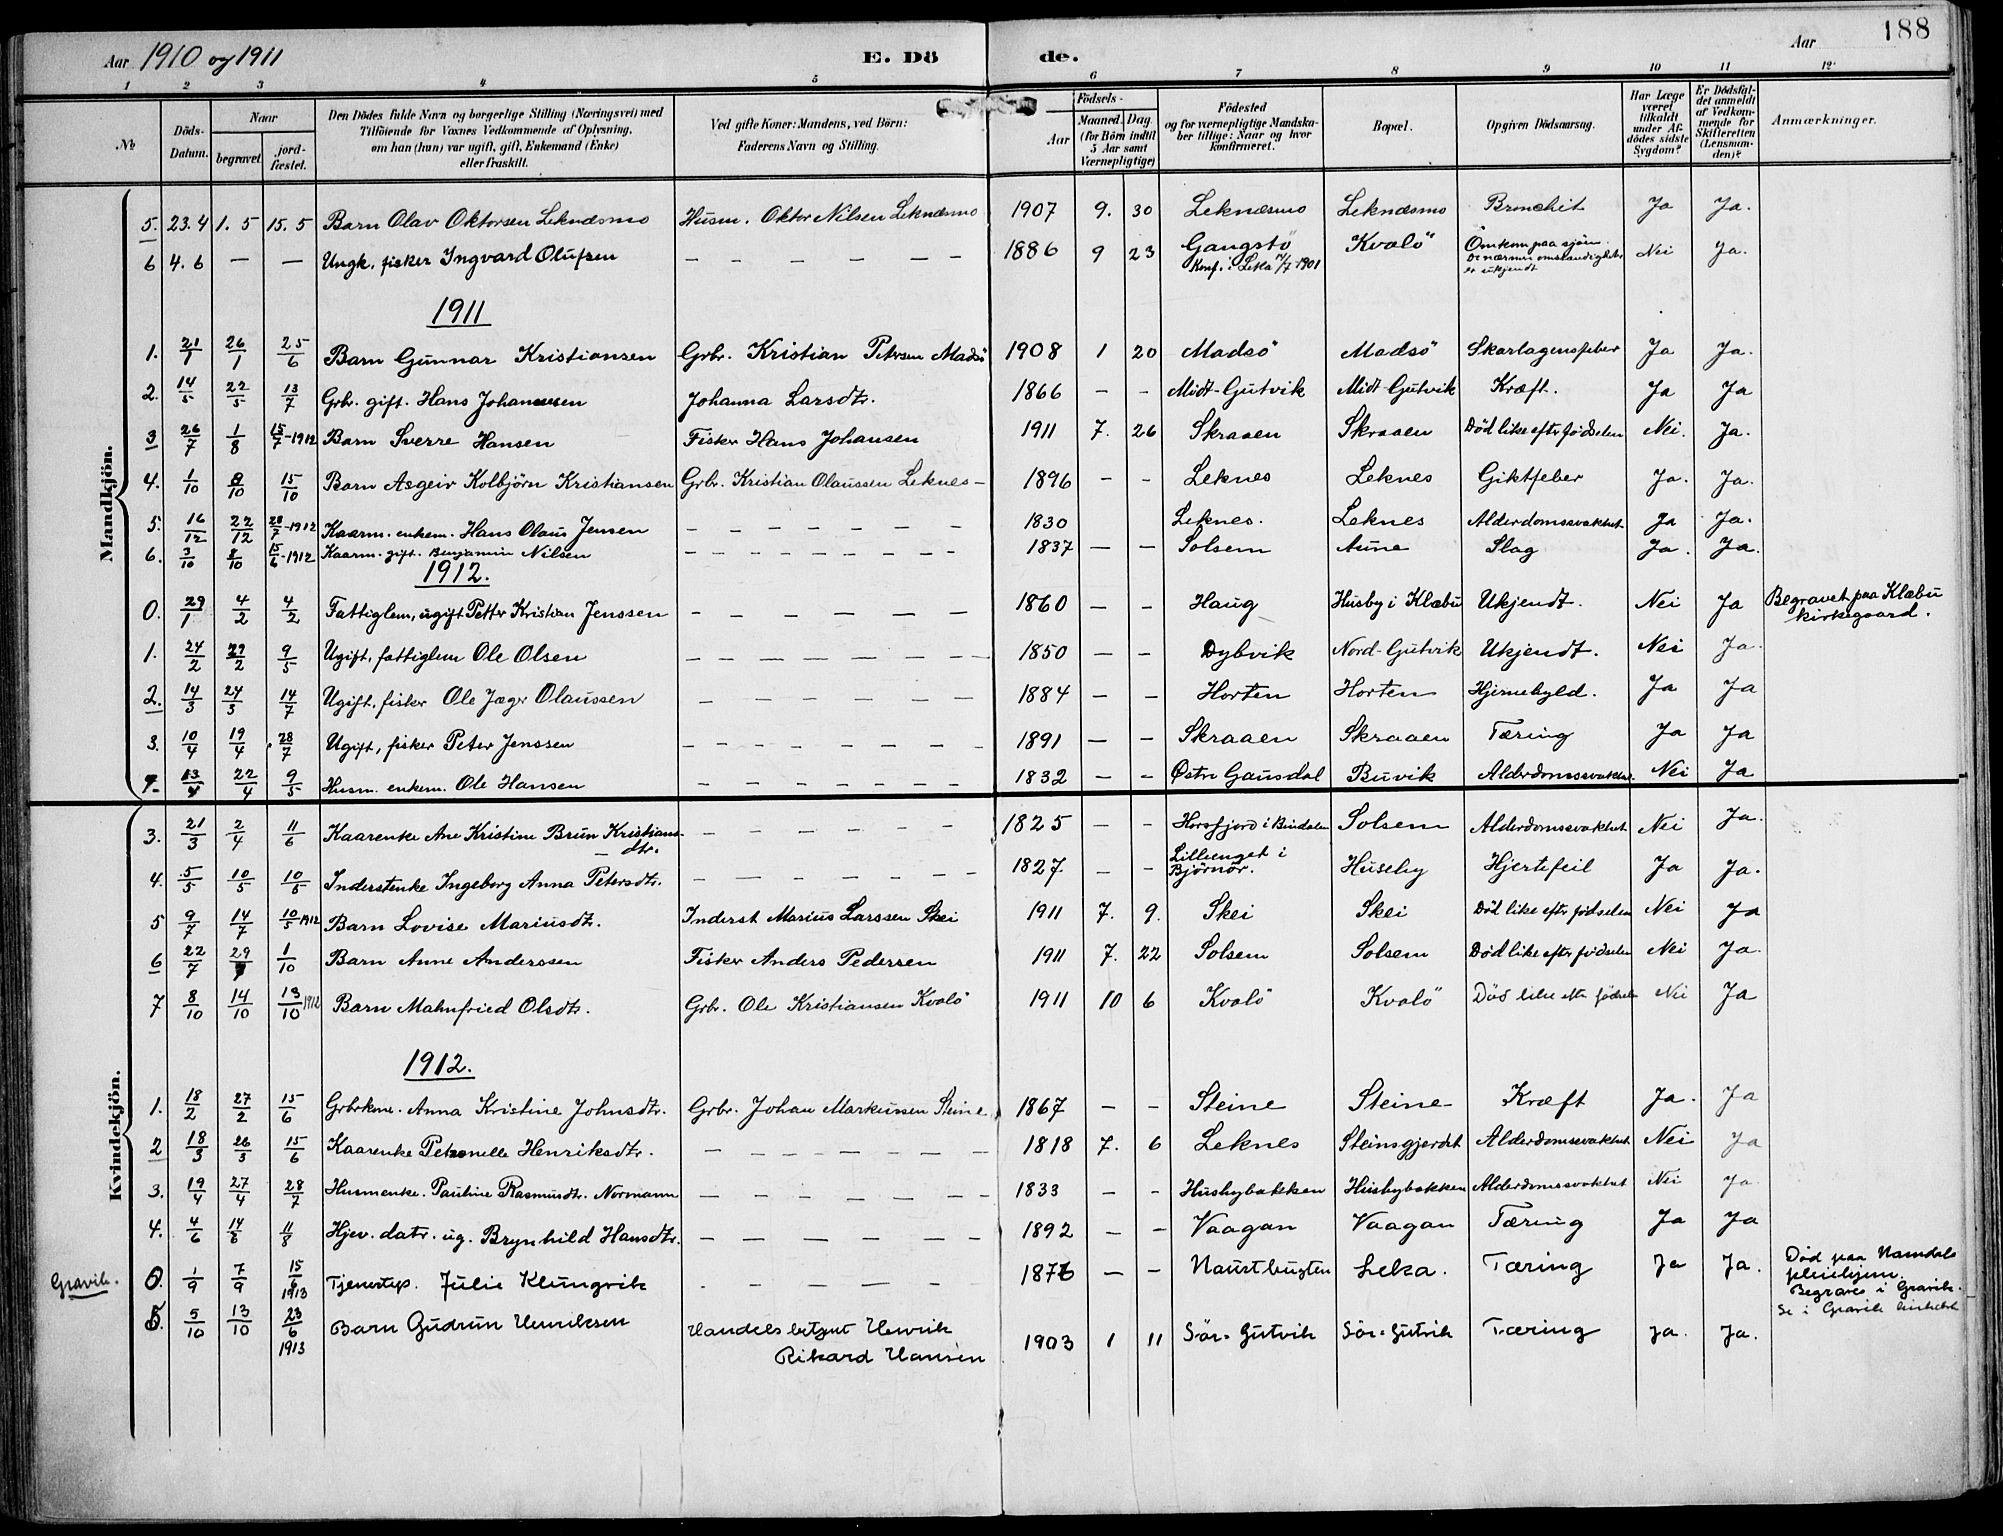 Aar 1910 og 1911 E. Dö de. Aar 188
1 2 3 4 5 6 7 8 9 10 11 12
No Döds-Datum. Naar begravet. jordfæstet. Den Dödes fulde Navn og borgerlige Stilling (Næringsvei) med Tilföiende for Voxnes Vedkommende af Oplysning, om han (hun) var ugift, gift, Enkemand (Enke) eller fraskilt. Ved gifte Koner: Mandens, ved Börn: Faderens Navn og Stilling. Aar Födsels- Maaned. Dag. (for Børn indtil 5 Aar samt Værnepligtige) Födested og for værnepligtige Mandskaber tillige: Naar og hvor konfirmeret. Bopæl. Opgiven Dödsaarsag. Har Læge været tilkaldt under Afdödes sidste Sygdom? Er Dödsfaldet anmeldt af Vedkommende for Skifteretten (Lensmanden)? Anmærkninger.
Mandkjön.
5. 23.4 1. 5 15. 5 Barn Olav Oktorsen Leknæsmo Husm. Oktor Nilsen Leknæsmo 1907 9. 30 Leknæsmo Leknæsmo Bronchit Ja Ja.
6 4. 6 — — Ungk. fisker Ingvard Olufsen — — — — — — 1886 9 23 Gangstö Konf. i Leka 14/7 1901 Kvalö Omkom paa sjöen. De nærmere omstændigheter er ukjendt Nei Ja.
1911
1. 21/1 26/1 25/6 Barn Gunnar Kristiansen Grbr. Kristian Petersen Madsö 1908 1 20 Madsö Madsö Skarlagensfeber Ja Ja.
2. 14/5 22/5 13/7 Grbr. gift. Hans Johannesen Johanna Larsdtr. 1866 — - Midt-Gutvik Midt-Gutvik Kræft. Ja Ja
3 26/7 1/8 15/7-1912 Barn Sverre Hansen Fisker Hans Johansen 1911 7. 26 Skraaen Skraaen Död like efter födselen Nei. Ja.
4. 1/10 8/10 15/10 Barn Asgeir Kolbjörn Kristiansen Grbr. Kristian Olaussen Leknes - 1896 - - Leknes Leknes Giktfeber Ja. Ja.
5. 16/12 22/12 28/7-1912 Kaarm. enkem. Hans Olaus Jensen — — — — — — — 1830 Leknes. Leknes Alderdomssvakhet Ja Ja.
6. 3/10 8/10 15/6-1912 Kaarm. gift. Benjamin Nilsen — — — — — — — — 1837 — — Solsem Aune Slag Ja. Ja.
1912.
0. 29/1 4/2 4/2 Fattiglem, ugift Petter Kristian Jenssen — — — — — 1860 — — Haug Husby i Klæbu Ukjendt. Nei Ja Begravet paa Klæbu kirkegaard.
1. 24/2 29/2 9/5 Ugift, fattiglem Ole Olsen — — — — — — — — 1850 — — Dybvik Nord-Gutvik Ukjendt. Nei Ja.
2. 14/3 24/3 14/7 Ugift, fisker Ole Jæger Olaussen — — — — — — 1884 — — Horten Horten Hjernebyld. Ja Ja
3. 10/4 19/4 28/7 Ugift, fisker Peter Jenssen — — — — — — — — 1891 — — Skraaen Skraaen Tæring Ja Ja
4 13/4 22/4 9/5 Husm. enkem. Ole Hansen — — — — — — — — 1832 — — Østre Gausdal Buvik Alderdomssvakhet Nei Ja
Kvindekjön.
3. 21/3 2/4 11/6 Kaarenke Ane Kristine Brun Kristians-dtr. — — — — — — 1825 — — Horsfjord i Bindalen Solsem Alderdomssvakhet Nei Ja.
4. 5/5 10/5 10/5 Inderstenke Ingeborg Anna Petersdtr. — — — — — — — 1827. — — Lillienget i Björnör. Huseby Hjertefeil Ja Ja.
5 9/7 14/7 10/5 1912 Barn Lovise Mariusdtr. Inderst Marius Larssen Skei 1911 7. 9. Skei Skei Död like efter födselen Nei Ja
6 22/7 29/7 1/10 Barn Anne Anderssen Fisker Anders Pedersen 1911 7. 22 Solsem Solsem Död like efter födselen Nei Ja.
7 8/10 14/10 13/10 1912 Barn Mahnfried Olsdtr. Grbr. Ole Kristiansen Kvalö 1911 10 6 Kvalö Kvalö Död like efter födselen Nei Ja
1912.
1. 18/2 27/2 15/6 Grbrkone. Anna Kristine Johnsdtr. Grbr. Johan Markussen Steine 1867 — — Steine Steine Kræft Ja. Ja
2 18/3 26/3 15/6 Kaarenke Petronelle Henriksdtr. — — — — — — — 1818 7. 6 Leknes Steinsgjerdet Alderdomssvakhet Nei Ja
3. 19/4 27/4 28/7 Husmenke. Pauline Rasmusdtr. Normann — — — — — — — 1833 — — Husbybakken Husbybakken Alderdomssvakhet Nei Ja
4. 4/6 14/6 11/8 Hjev. datr. ug. Brynhild Hansdtr. — — — — — — 1892 — — Vaagan Vaagan Tæring Ja Ja
Gravik. 0. 1/9 7/9 15/6 1913 Tjenestep. Julie Klungvik - — — — — 1876 — — Naustbugten Leka. Tæring Ja Ja. Död paa Namdals pleiehjem. Begraves i Gravik. Se i Gravik kirkebok
5. 5/10 13/10 23/6 1913 Barn Gudrun Henriksen Handels betjent Henrik Rikard Hansen 1903 1 11 Sör-Gutvik Sör-Gutvik Tæring Ja. Ja.